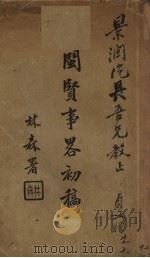 景潤院長吾兄教正
閩賢事畧初稿
林森署